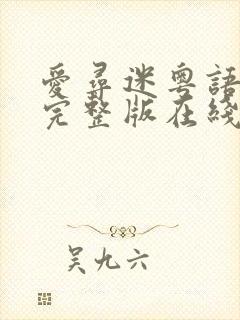 愛尋迷粵語
完整版在綫
吴九六